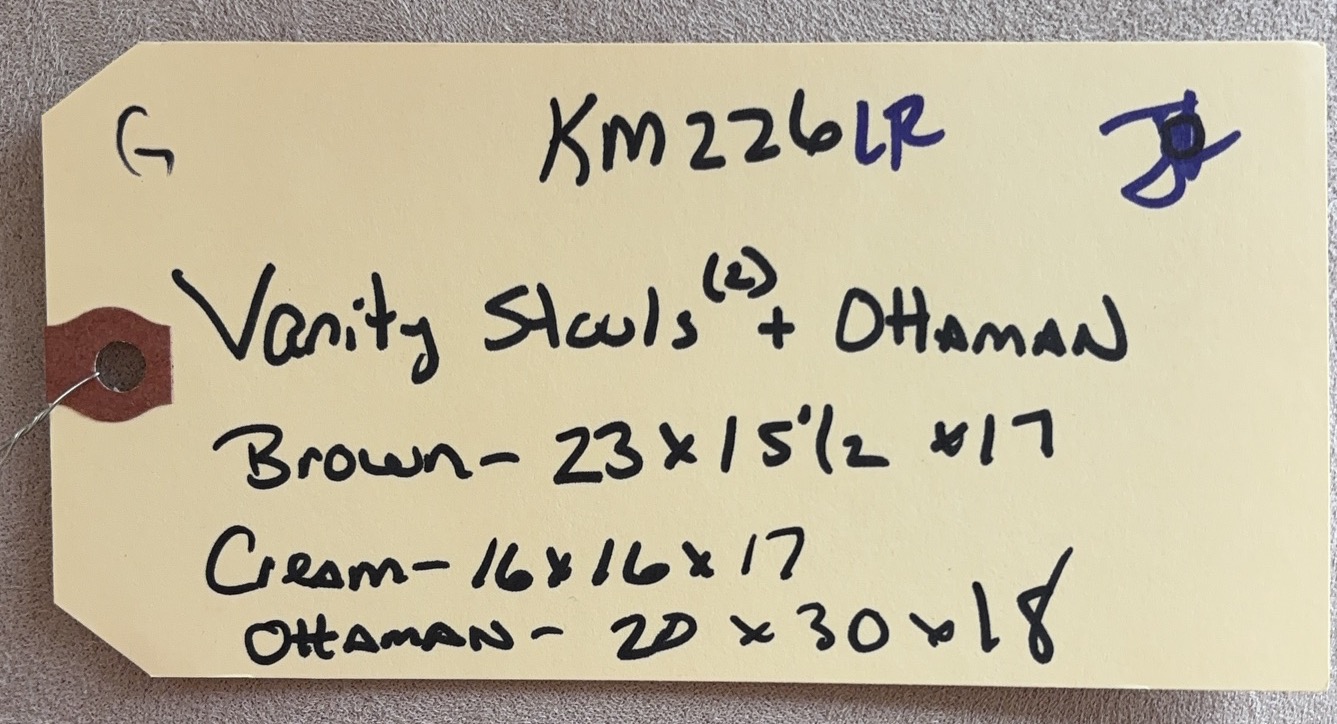 G KM226LR
Vanity Stouls (2) + OTTAMAN
Brown- 23 x 15 1/2 x 17
Cream- 16 x 16 x 17
OTTAMAN - 20 x 30 x 18